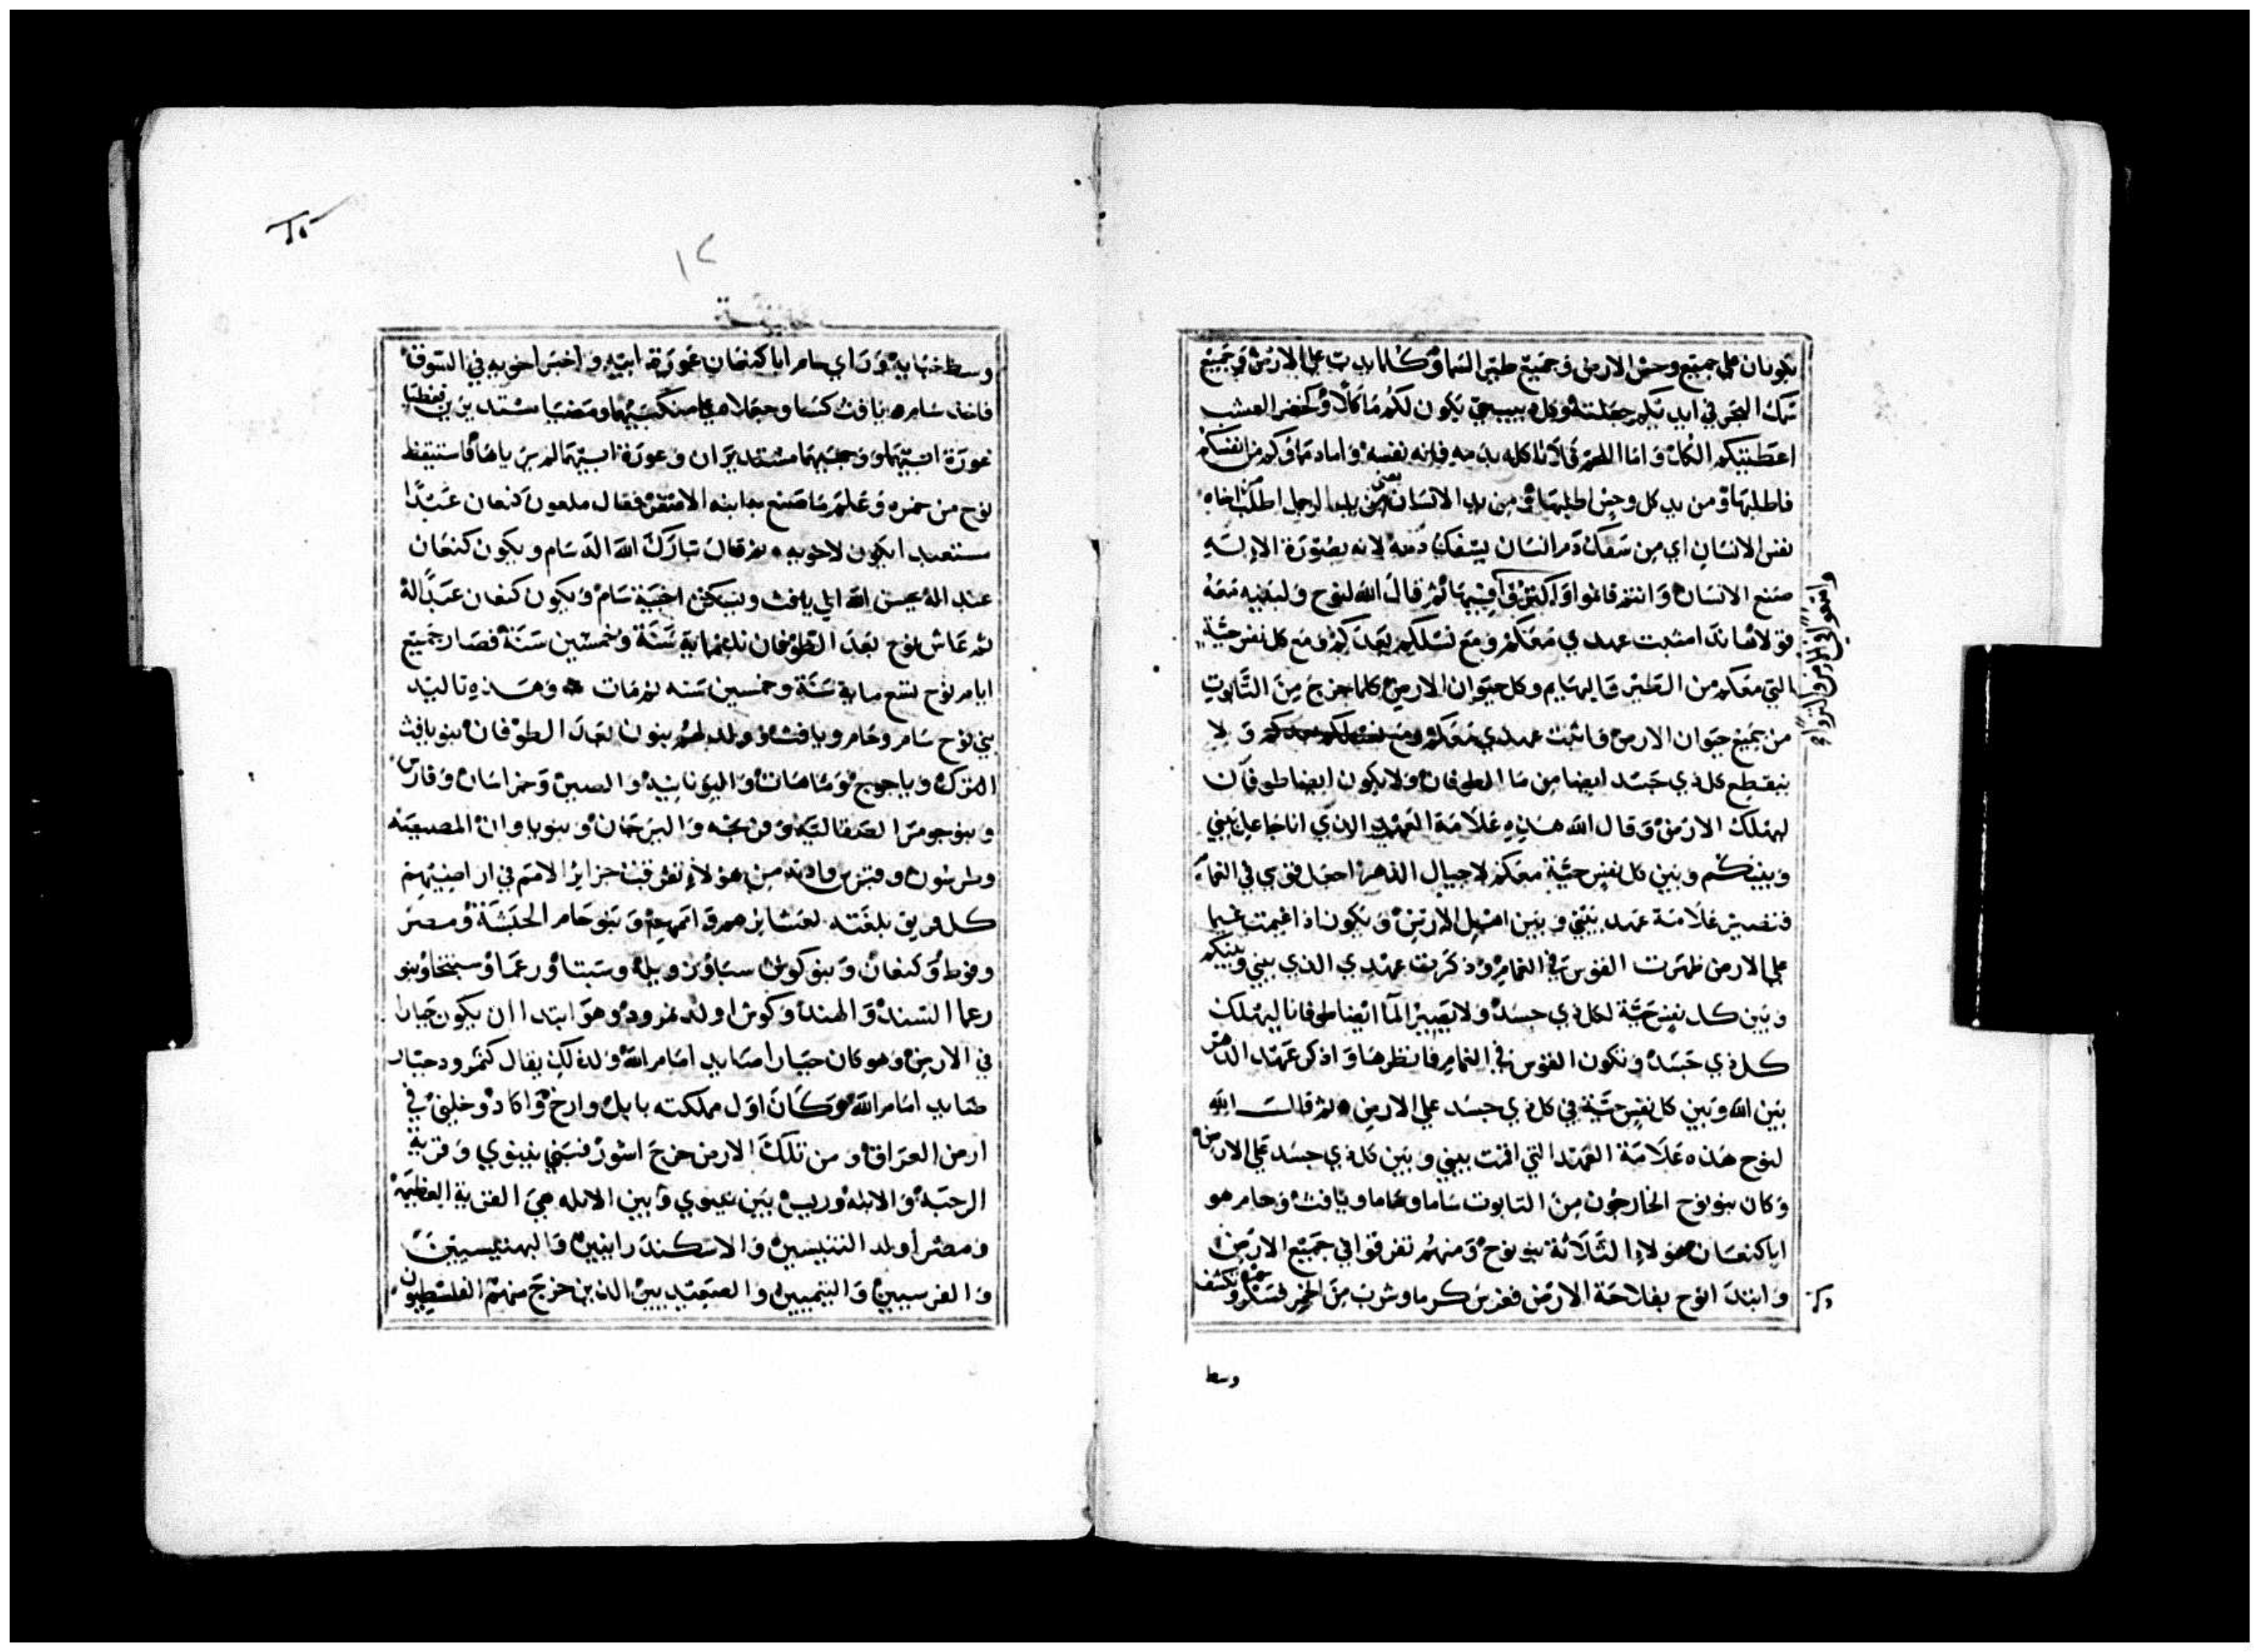 تكونان على جميع وحش الارض وجميع طير السما وكلما يدب على الارض وجميع
سمك البحر في ايديكم جعلته وكل دبيب حي يكون لكم ماكلا وكخضر العشب
اعطيتكم الكل واما اللحم فلا تاكله بدمه فانه نفسه واما دماوكم من انفسكم
فاطلبها ومن يد كل وحش اطلبها ومن يد الانسان يعني من يد الرجل اطلب اخاه
نفس الانسان اي من سفك دم انسان يسفك دمه لانه بصورة الاله
صنع الانسان وانتم فانموا واكثروا فيها ثم قال الله لنوح ولبنيه معه
واسعوا في الارض والتردا فيها
قولا هانذا مثبت عهدي معكم ومع نسلكم بعدكم ومع كل نفس حية
التي معكم من الطير والبهايم وكل حيوان الارض كلما خرج من التابوت
من جميع حيوان الارض فاثبت عهدي معكم ولا
ينقطع كل ذي جسد ايضا من ما الطوفان ولا يكون ايضا طوفان
ليهلك الارض وقال الله هذه علامة العهد الذي انا جاعل بيني
وبينكم وبين كل نفس حية معكم لاجيال الدهر اجعل قوسي في الغمام
فتصير علامة عهد بيني وبين اهل الارض ويكون اذا غيمت غيما
على الارض ظهرت القوس في الغمام وذكرت عهدي الذي بيني وبينكم
وبين كل نفس حية لكل ذي جسد ولا يصير الما ايضا طوفانا ليهلك
كل ذي جسد وتكون القوس في الغمام فانظرها واذكر عهد الدهر
بين الله وبين كل نفس حية في كل ذي جسد على الارض ثم قالت الله
لنوح هذه علامة العهد التي اقمت بيني وبين كل ذي جسد على الارض
وكان بنو نوح الخارجون من التابوت ساما وحاما ويافث وحام هو
ابا كنعان هولاء الثلاثة بنو نوح ومنهم تفرقوا في جميع الارض
وابتدا نوح بفلاحة الارض فغرس كرما وشرب من الخمر فسكر وتكشف
وسط
١٢
وسط خبايه وراي حام ابا كنعان عورة ابيه واخبر اخويه في السوق
فاخذ سام ويافث كسا وجعلاه على منكبيهما ومضيا مستدبرين فغطيا
عورة ابيهما ووجههما مستدبران وعورة ابيهما لم يرياها فاستيقظ
نوح من خمره وعلم ما صنع به ابنه الاصغر فقال ملعون كنعان عبدا
مستعبدا يكون لاخويه ثم قال تبارك الله اله سام ويكون كنعان
عبد اله يحسن الله الي يافث ويسكن اخبية سام ويكون كنعان عبدا له
ثم عاش نوح بعد الطوفان ثلثماية سنة وخمسين سنة فصار جميع
ايام نوح تسع ماية سنة وخمسين سنه ثم مات وهذه تاليد
بني نوح سام وحام ويافث وولد لهم بنون بعد الطوفان بنو يافث
الترك وياجوج وماهات واليونانيه والصين وخراسان وفارس
وبنو جومر الصقالبه وفرنجه والبرجان وبنو ياوان المصيصه
وطرسوس وقبرس وادنه من هولاء تفرقت جزاير الامم في اراضيهم
كل فريق بلغته لعشايرهم واممهم وبنو حام الحبشة ومصر
وفوط وكنعان وبنو كوش سبا وزويله وسبتا ورعما وسبتخا وبنو
رعما السند والهند وكوش اولد نمرود وهو ابتدا ان يكون جبارا
في الارض وهو كان جبارا صايد امام الله ولذلك يقال كنمرود جبار
صايد امام الله وكان اول مملكته بابل وارخ واكاد وخلني في
ارض العراق ومن تلك الارض خرج اشور فبني نينوي وقرية
الرحبه والابله وريس بين نينوي وبين الابله هي القرية العظيمه
ومصر أولد التنيسين والاسكندرانيين والبهنسيين
والفرسيين والبتميين والصعيديين الذين خرج منهم الفلسطيون